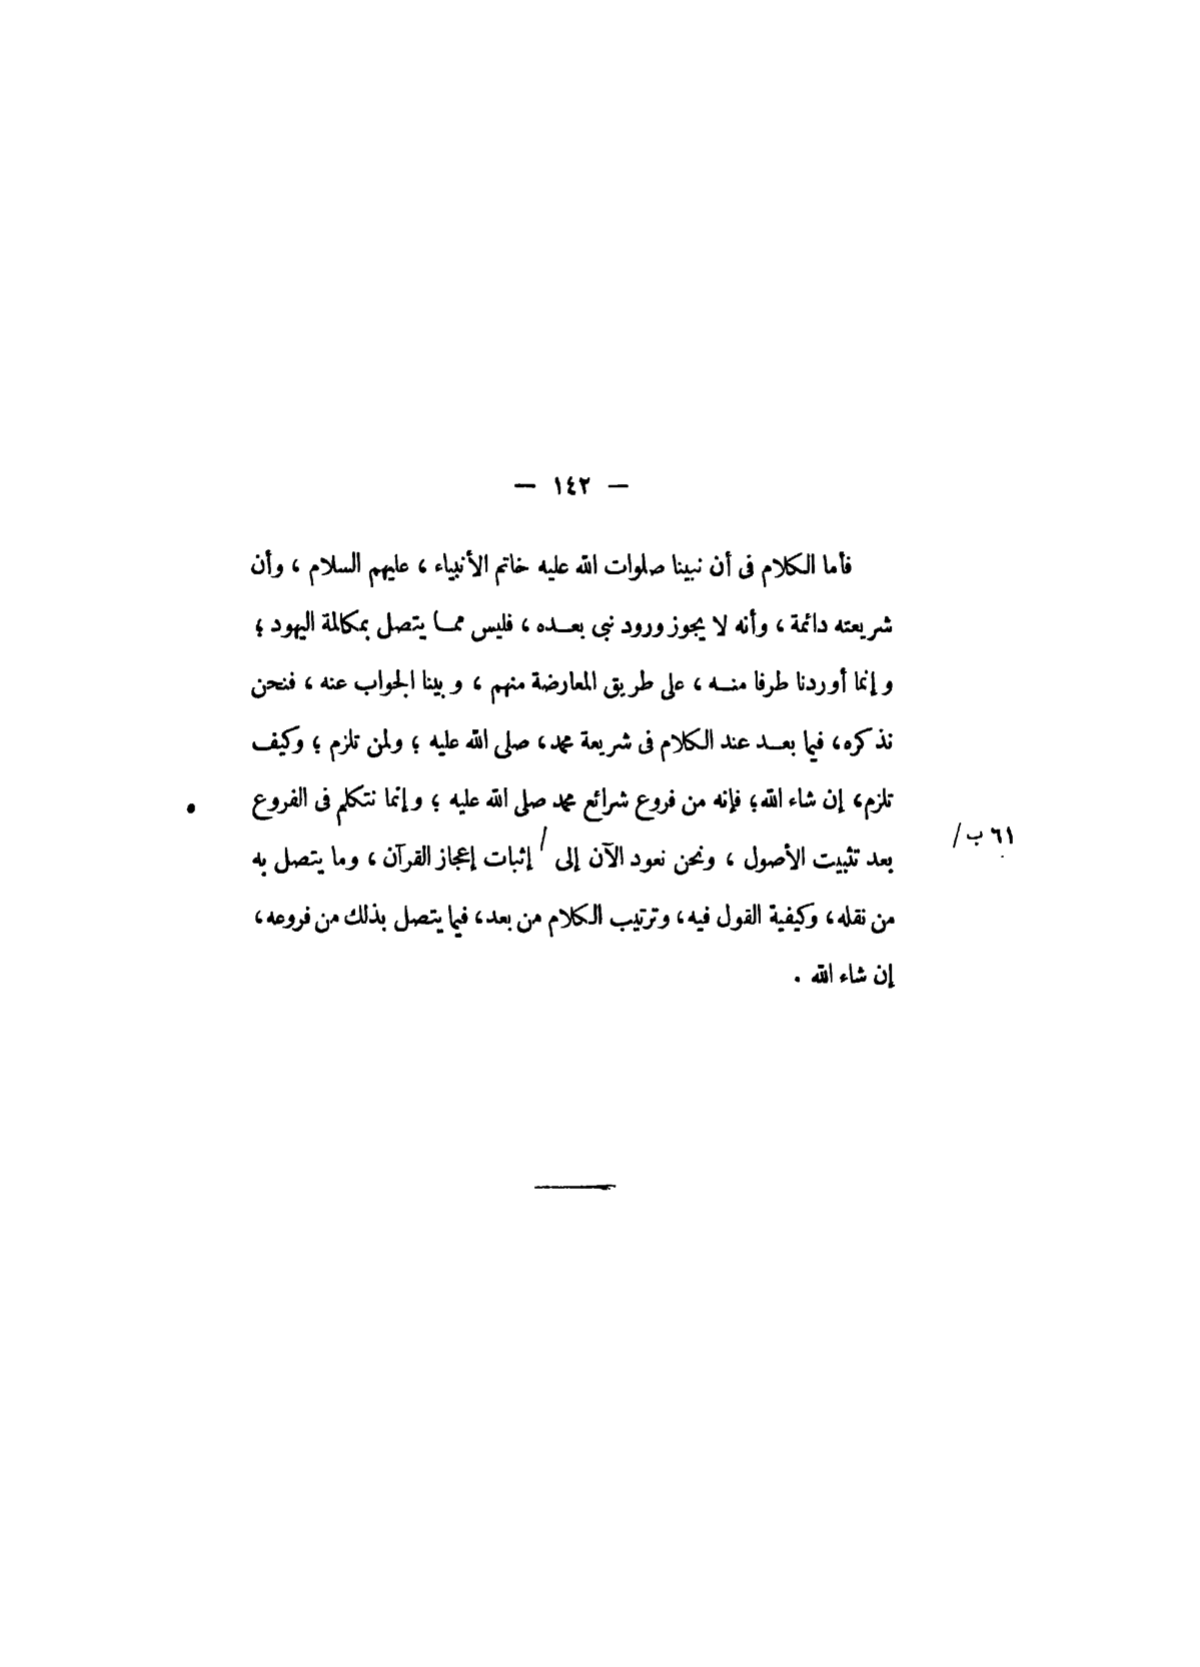 — ١٤٢ —
فأما الكلام فى أن نبينا صلوات الله عليه خاتم الأنبياء ، عليهم السلام ، وأن
شريعته دائمة ، وأنه لا يجوز ورود نبى بعـــده ، فليس ممـــا يتصل بمكالمة اليهود ؛
و إنما أوردنا طرفا منـــه ، على طريق المعارضة منهم ، و بينا الجواب عنه ، فنحن
نذكره، فيما بعـــد عند الكلام فى شريعة محمد، صلى الله عليه ؛ ولمن تلزم ؛ وكيف
تلزم، إن شاء الله؛ فإنه من فروع شرائع محمد صلى الله عليه ؛ و إنما نتكلم فى الفروع
٦١ ب /
بعد تثبيت الأصول ، ونحن نعود الآن إلى / إثبات إعجاز القرآن ، وما يتصل به
من نقله، وكيفية القول فيه، وترتيب الكلام من بعد، فيما يتصل بذلك من فروعه،
إن شاء الله .